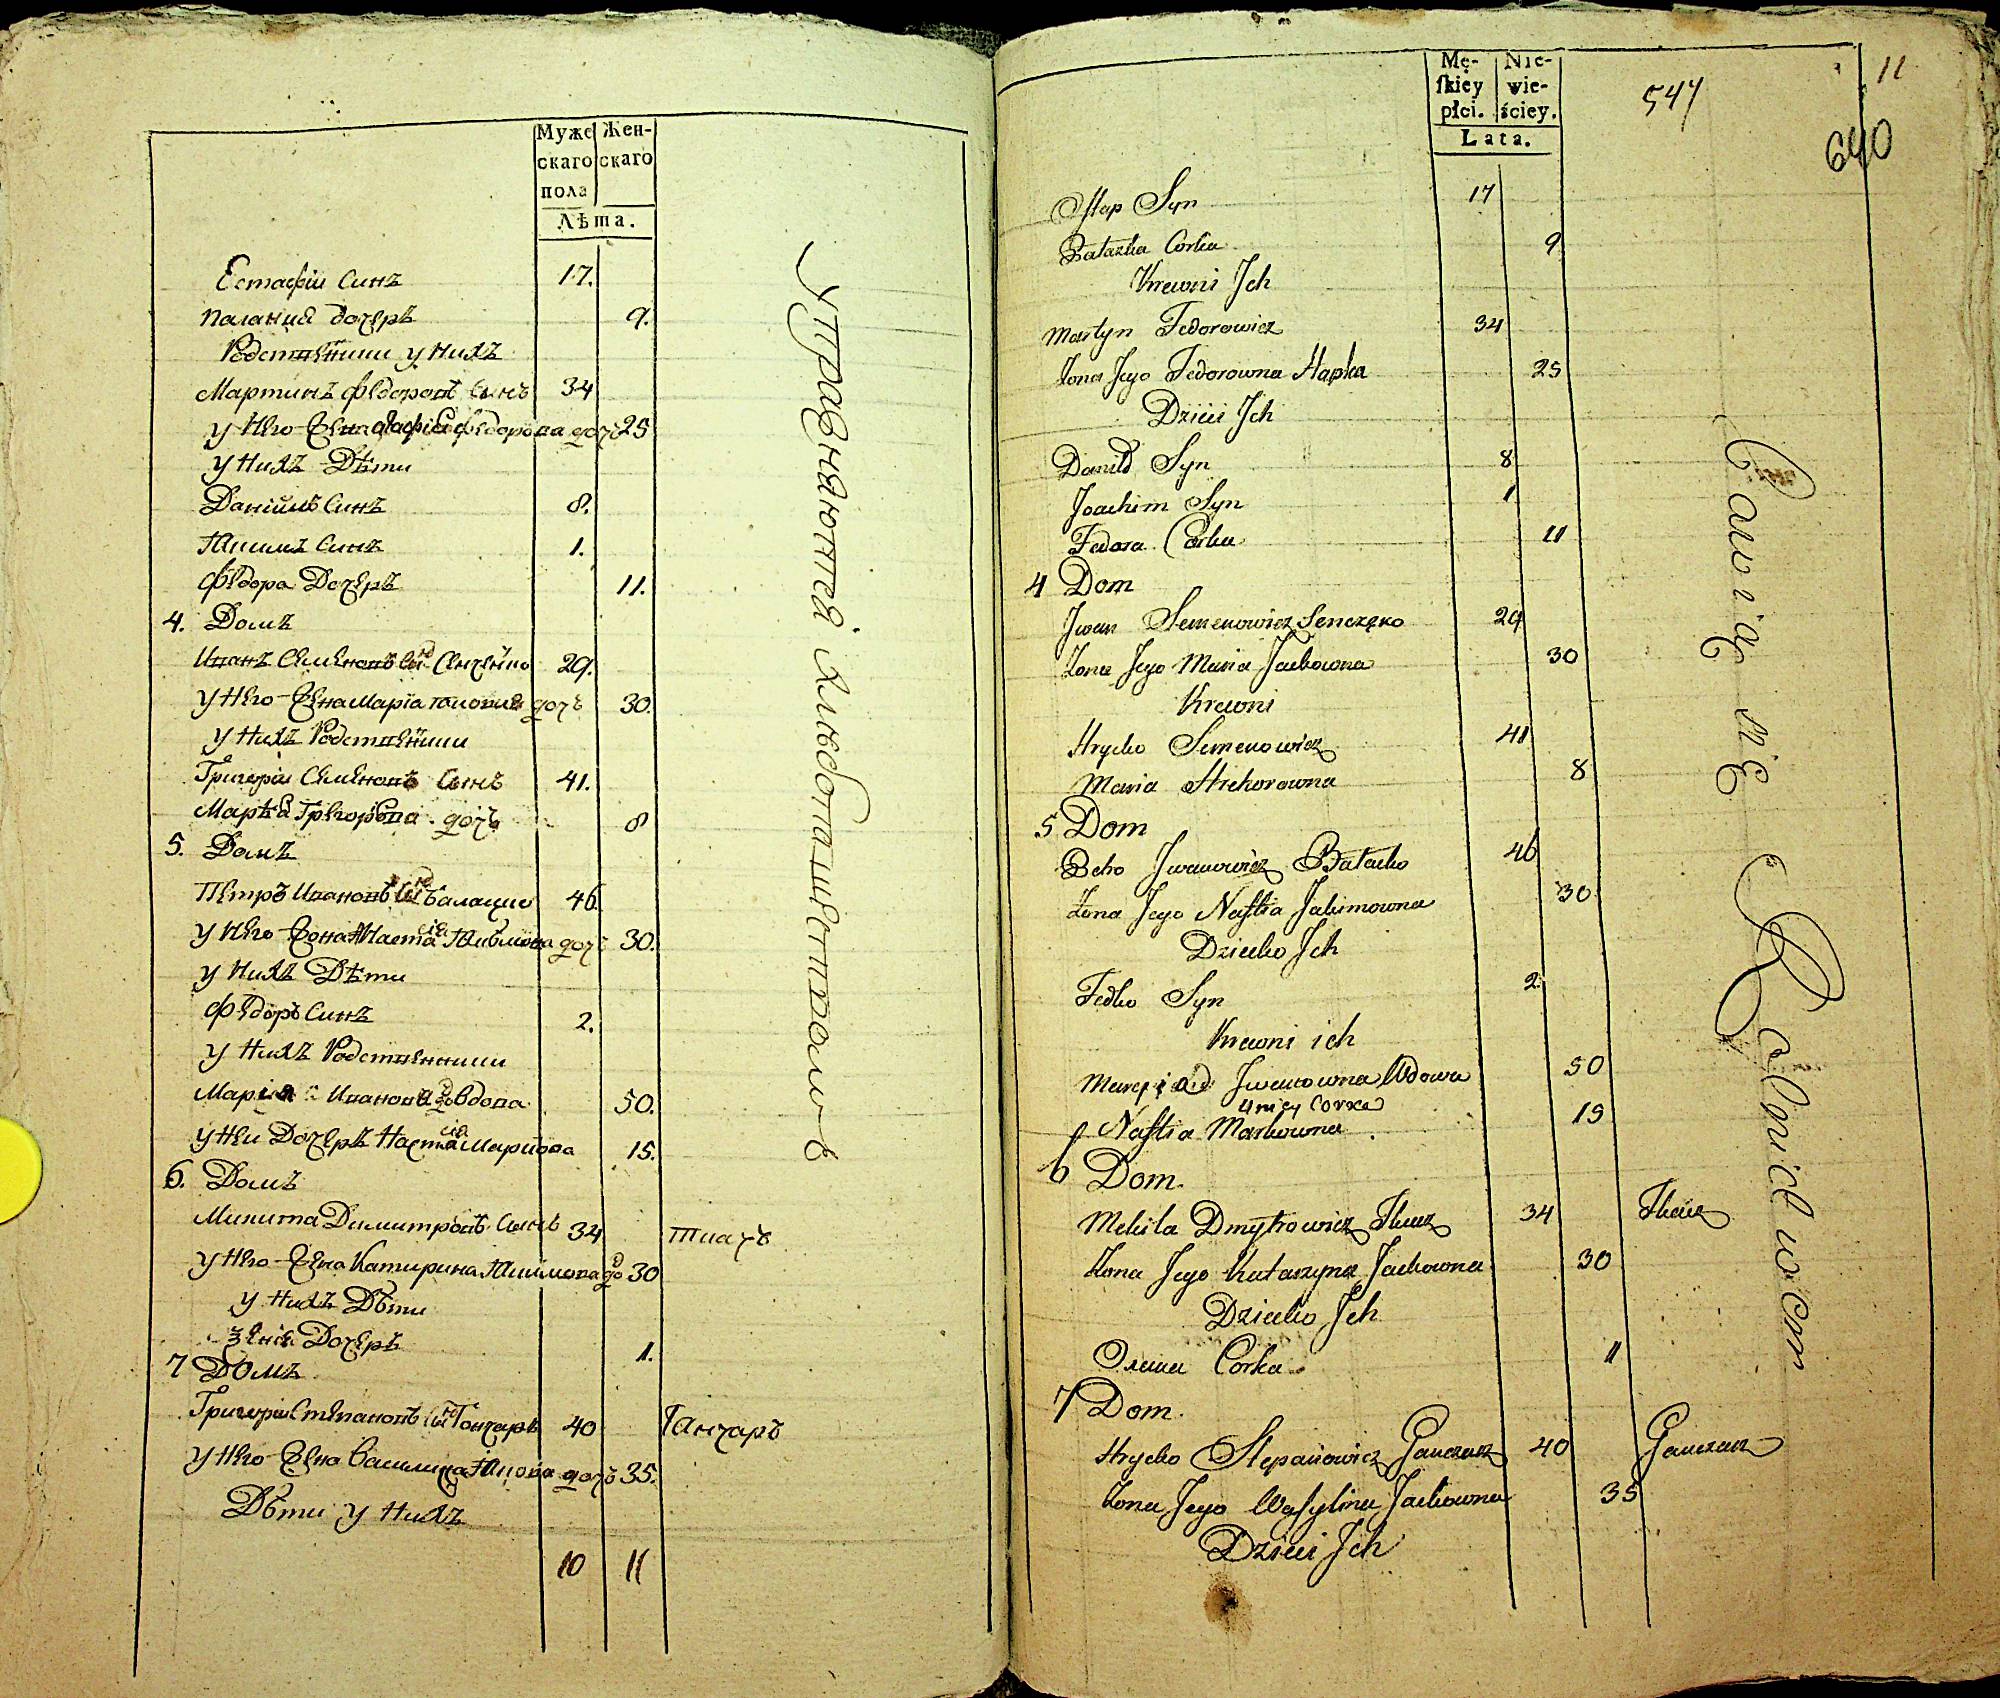 Муже Жен-
скаго скаго
пола
Лѣта.
Естафіи Синъ 17.
Палания дочерь 9.
Родственики у Нихъ
Мартинъ Федоровъ Сынъ 34
у Него Жена Агафіа Федорова дочь 25
у Нихъ Дѣти
Даніилъ Синъ 8.
Якимъ Синъ 1.
Федора Дочерь 11.
4. Домъ
Иванъ Семеновъ Сынъ Сенченко 29.
у Него Жена Маріа Яковлева дочь 30.
у Нихъ Родственики
Григорій Семеновъ Сынъ 41.
Маріа Григоріева дочь 8
5. Домъ
Петръ Ивановъ Сынъ Балацко 46.
у Него Жена Настасіа Якимова дочь 30.
у Нихъ Дѣти
Федоръ Синъ 2.
у Нихъ Родственники
Марія Иванова До Вдова 50.
у Неи Дочерь Настасіа Маркова 15.
6. Домъ
Микита Димитровъ Сынъ 34 Ткачь
у Него Жена Катирина Якимова до 30
у Нихъ Дѣти
Дочерь 1.
7 Домъ
Григорій Степановъ Сынъ Гончаръ 40 Ганчаръ
у Него Жена Василина Якова дочь 35.
Дѣти у Нихъ
10 11
Упражняются Хлебопашествомъ
Mę- Nie-
skiey wie-
płci. ściey.
Lata.
547
11
640
Ostap Syn 17
Pałazka Corka 9
Krewni Jch
Martyn Fedorowicz 34
Żona Jego Fedorowna Hapka 25
Dzieci Jch
Daniło Syn 8
Joachim Syn 1
Fedora Corka 11
4 Dom
Jwan Semenowicz Senczęko 29
Żona Jego Maria Jackowna 30
Krewni
Hrycko Semenowicz 41
Maria Hrehorowna 8
5 Dom
Petro Jwanowicz Bałacko 46
Żona Jego Nastia Jakimowna 30
Dziecko Jch
Fedko Syn 2
Krewni ich
Jwanowna Wdowa 50
U niey Corka
Nastia Markowna 15
6 Dom
Mekita Dmytrowicz Tkacz 34 Tkacz
Żona Jego Katarzyna Jackowna 30
Dziecko Jch
Corka 11
7 Dom
Hrycko Stepanowicz Ganczarz 40 Ganczarz
Żona Jego Wasylina Jackowna 35
Dzieci Jch
Bawią się Rolnictwem